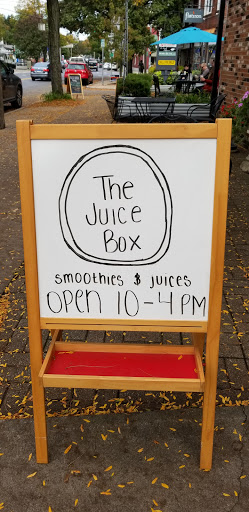 The
Juice
Box
smoothies $ juices
OPEN 10-4 PM